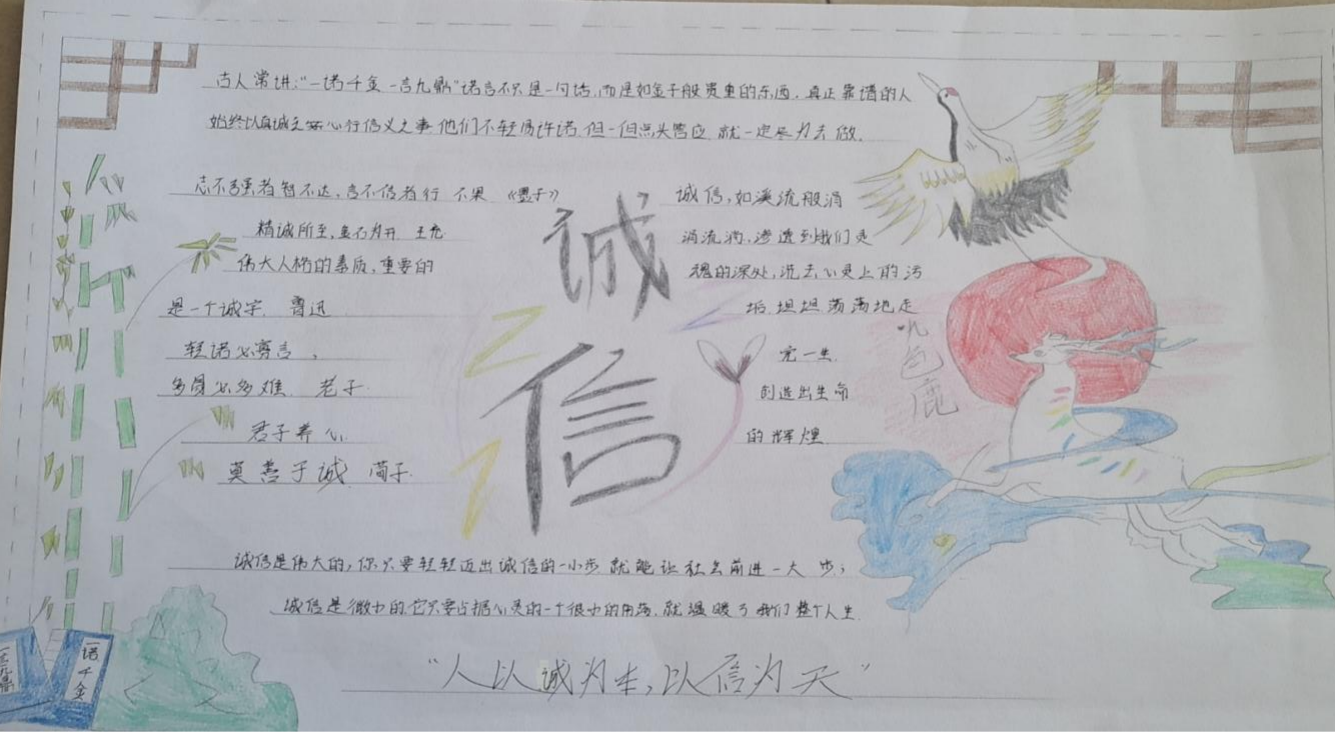 古人常讲:"一诺千金 一言九鼎"诺言不只是一句话,而是如金子般贵重的东西,真正靠谱的人
始终以真诚之心行信义之事他们不轻易许诺 但一但点头答应 就一定尽力去做.
志不强者智不达,言不信者行 不果 《墨子》
精诚所至,金石为开 王充
伟大人格的素质,重要的
是一个诚字 鲁迅
轻诺必寡信,
多易必多难 老子
君子养心
莫善于诚 荀子.
诚
信
诚信,如溪流般涓
涓流淌,渗透到我们灵
魂的深处,洗去心灵上的污
垢 坦坦荡荡地走
完一生
创造出生命
的辉煌
九色鹿
诚信是伟大的,你只要轻轻迈出诚信的一小步 就能让社会前进一大 步;
诚信是微小的,它只要占据心灵的一个很小的角落,就温暖了我们整个人生
"人以诚为本,以信为天"
一诺千金
一言九鼎